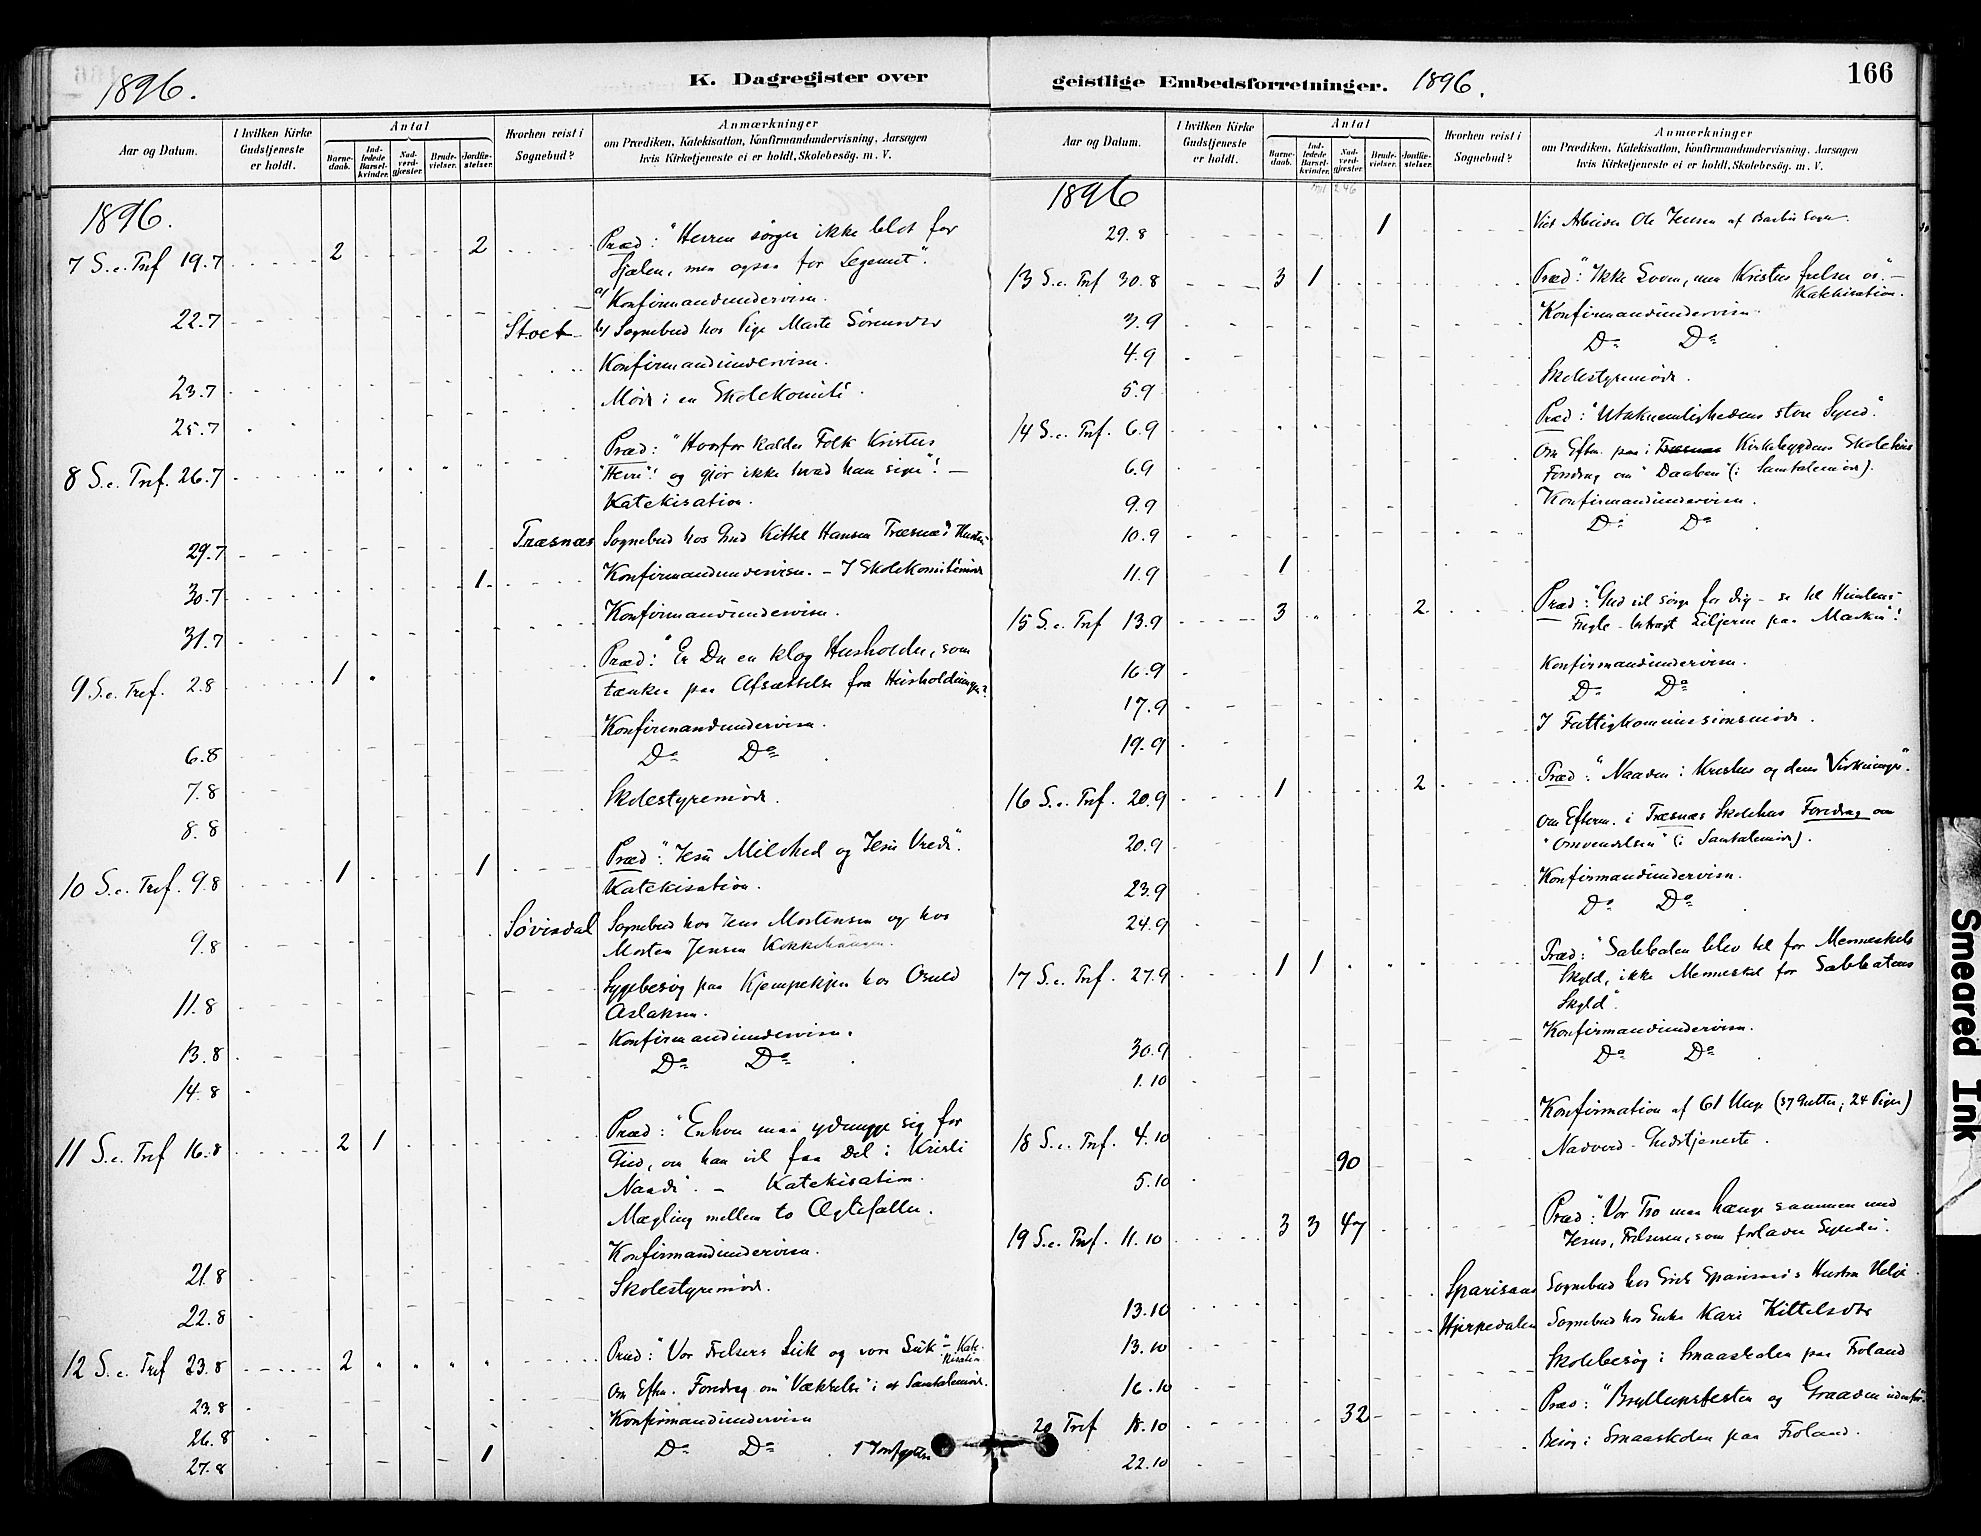 1896.
K. Dagregister over
geistlige Embedsforretninger.
1896.
166
Aar og Datum.
I hvilken Kirke Gudstjeneste er holdt.
Antal
Barnedaab.
Indledede Barselkvinder.
Nadverdgjæster.
Brudevielser.
Jordfæstelser.
Hvorhen reist i Sognebud?
Anmærkninger
om Prædiken, Katekisation, Konfirmandundervisning, Aarsagen
hvis Kirketjeneste ei er holdt, Skolebesøg. m. V.
1896.
7 S. e. Tref 19.7 2 2 Præd: "Herren sørger ikke blot for
Sjælen, men ogsaa for Legemet".
22.7 a) Konfirmandundervisn.
Stoet b) Sognebud hos Pige Marte Sørensdtr
23.7 Konfirmandundervisn.
25.7 Møde i en Skolekomité.
8 S. e. Tref. 26.7 Præd: "Hvorfor kalder Folk Kristus
"Herre"! og gjør ikke hvad han siger"! –
Katekisation.
29.7 Træsnæs Sognebud hos Kittel Hansen Træsnæs Hustru
30.7 1 Konfirmandundervisn. – I Skolekomitémøde
31.7 Konfirmandundervisn.
9 S. e. Tref. 2.8 1 Præd: "Er Du en klog Husholder, som
tænker paa Afsættelse fra Husholdningen?
6.8 Konfirmandundervisn.
7.8 Do Do
8.8 Skolestyremøde.
10 S. e. Tref. 9.8 1 1 Præd: "Jesu Mildhed og Jesu Vrede".
Katekisation.
9.8 Søvisdal Sognebud hos Jens Mortensen og hos
Morten Jensen
11.8 Sygebesøg paa Kjempekjen hos Osuld
Aslaksen.
13.8 Konfirmandundervisn.
14.8 Do Do
11 S. e. Tref 16.8 2 1 Præd: "Enhver maa ydmyge sig for
Gud, om han vil faa Del i Kristi
Naade". – Katekisation.
Mægling mellem to Ægtefæller.
21.8 Konfirmandundervisn.
22.8 Skolestyremøde.
12 S. e. Tref 23.8 2 Præd: "Vor Frelsers Suk og vore Suk" – Katekisation
23.8 Om Eftm. Foredrag om "Vækkelse" i et Samtalemøde.
26.8 Konfirmandundervisn
27.8 1 Do Do
Aar og Datum.
I hvilken Kirke Gudstjeneste er holdt.
Antal
Barnedaab.
Indledede Barselkvinder.
Nadverdgjæster.
Brudevielser.
Jordfæstelser.
Hvorhen reist i Sognebud?
Anmærkninger
om Prædiken, Katekisation, Konfirmandundervisning, Aarsagen
hvis Kirketjeneste ei er holdt, Skolebesøg. m. V.
1896
29.8 1 Viet Arbeider Ole Jensen af Barbu Sogn.
13 S. e. Tref 30.8 3 1 Præd: "Ikke Loven, men Kristus frelser os". –
Katekisation.
3.9 Konfirmandundervisn.
4.9 Do Do
5.9 Skolestyremøde.
14 S. e. Tref. 6.9 Præd: "Utaknemlighedens store Synd".
6.9 Om Eftm. paa i Kirkebygdens Skolehus
Foredrag om "Daaben" (i Samtalemøde).
9.9 Konfirmandundervisn.
10.9 Do Do
11.9 1
15 S. e. Tref 13.9 3 2 Præd: "Gud vil sørge for dig – se til Himlens
Fugle – betragt Liljerne paa Marken"!
16.9 Konfirmandundervisn.
17.9 Do Do
19.9 I Fattigkommissionsmøde.
16 S. e. Tref. 20.9 1 2 Præd: "Naaden i Kristus og dens Virkninger".
20.9 Om Efterm. i Træsnæs Skolehus Foredrag om
"Omvendelsen" (i Samtalemøde).
23.9 Konfirmandundervisn.
24.9 Do Do
17 S. e. Tref. 27.9 1 1 Præd: "Sabbaten blev til for Menneskets
Skyld, ikke Mennesket for Sabbatens
Skyld".
30.9 Konfirmandundervisn.
1.10 Do Do
18 S. e. Tref. 4.10 Konfirmation af 61 Unge (37 Gutter, 24 Piger)
5.10 90 Nadverd-Gudstjeneste.
19 S. e. Tref. 11.10 3 3 47 Præd: "Vor Tro maa hænge sammen med
Jesus, Frelseren, som forlader Synden".
13.10 Sparisaas Sognebud hos Hustru Helje.
13.10 Hjerpedalen Sognebud hos Enke Kari Kittelsdtr
16.10 Skolebesøg i Smaaskolen paa Froland
20 Tref 18.10 32 Præd: "Bryllupsfesten og Graaden udenfor".
22.10 Besøg i Smaaskolen paa Froland.
Smeared Ink